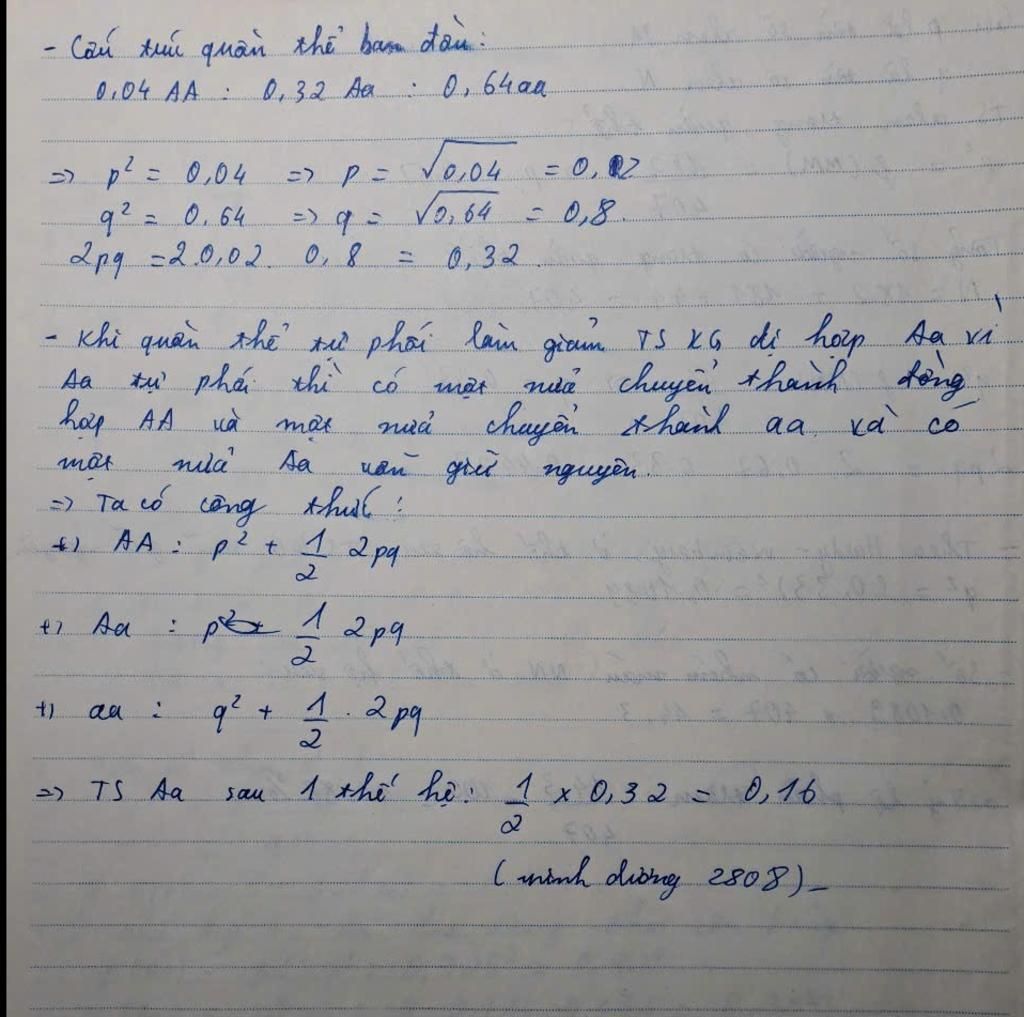 - Cấu trúc quần thể ban đầu:
0,04 AA : 0,32 Aa : 0,64aa
=> p² = 0,04 => p = √0,04 = 0,2
q² = 0,64 => q = √0,64 = 0,8.
2pq = 2.0,02. 0,8 = 0,32.
- Khi quần thể tự phối làm giảm TS KG dị hợp Aa vì
Aa tự phối thì có một nửa chuyển thành đồng
hợp AA và một nửa chuyển thành aa và có
một nửa Aa vẫn giữ nguyên.
=> Ta có công thức:
+) AA : p² + 1/2 2pq
+) Aa : 1/2 2pq
+) aa : q² + 1/2 . 2pq
=> TS Aa sau 1 thế hệ: 1/2 x 0,32 = 0,16
(minh dương 2808)_